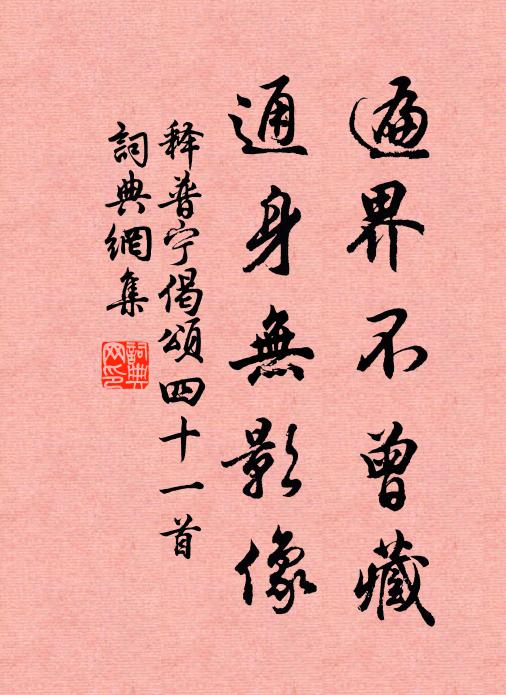 遍界不曾藏
通身無影像
释普宁偈頌四十一首
詞典網集
詞典網印